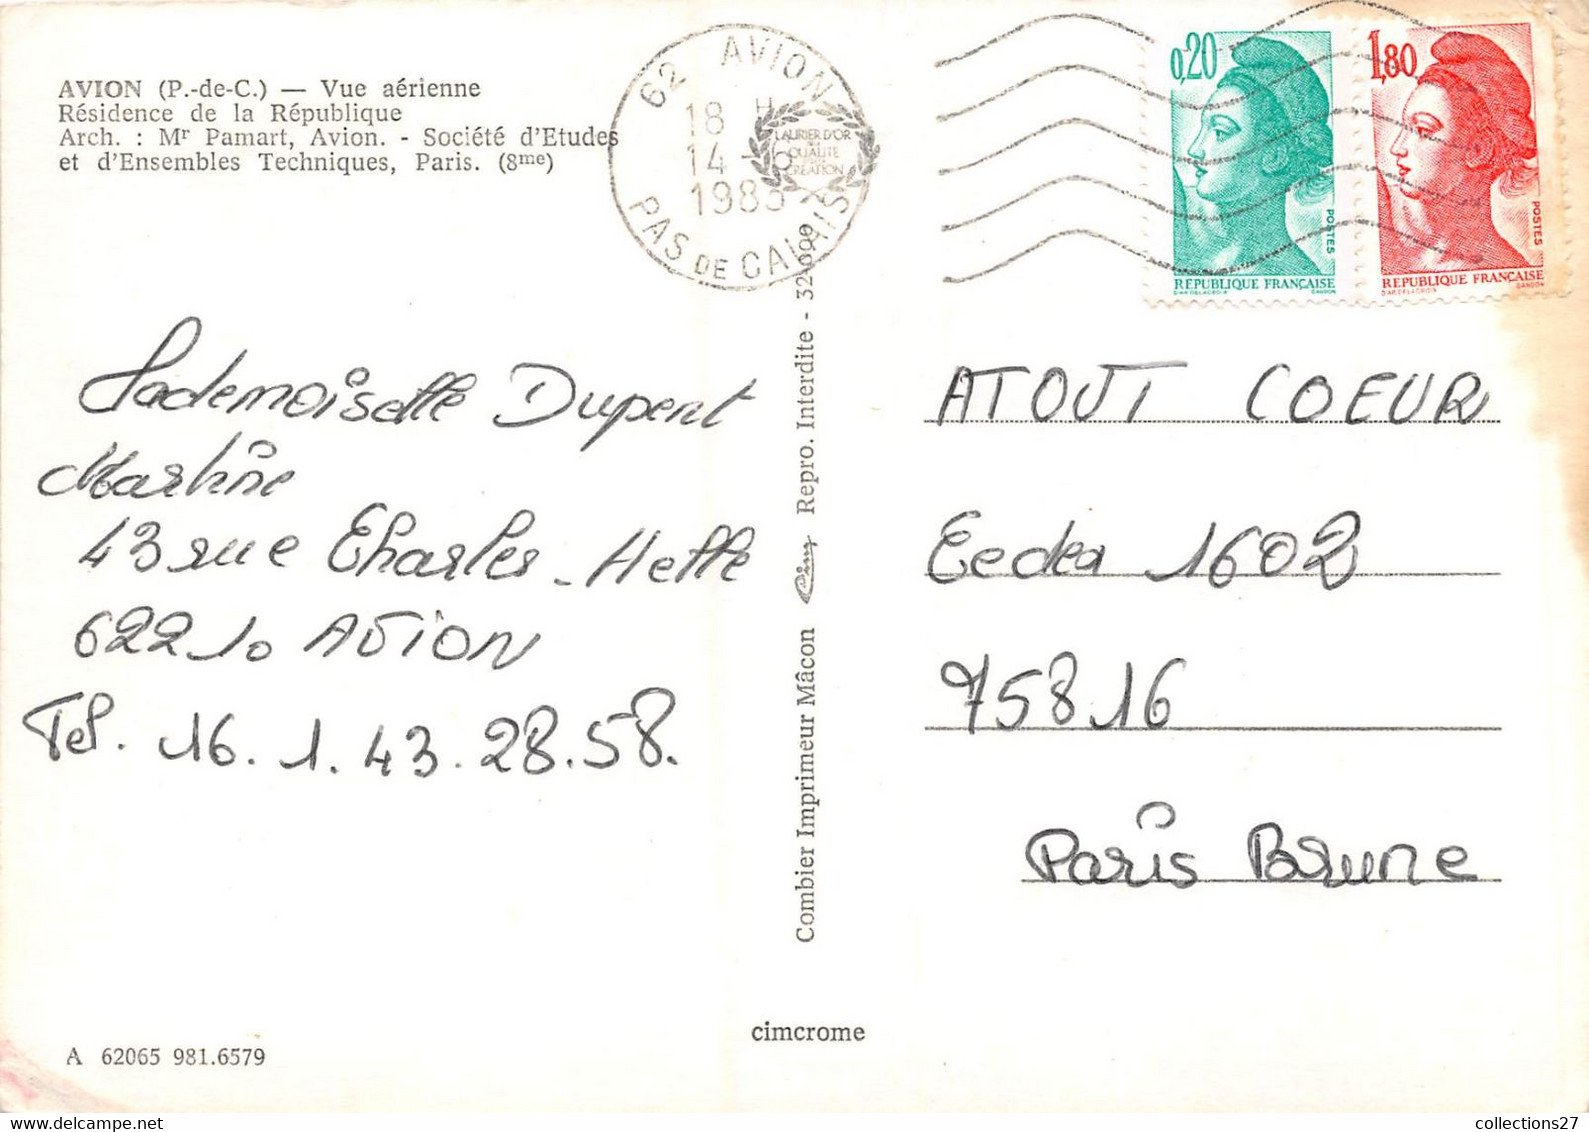 AVION (P.-de-C.) — Vue aérienne
Résidence de la République
Arch. : Mr Pamart, Avion. - Société d'Etudes
et d'Ensembles Techniques, Paris. (8me)
62 AVION
18 H
14 -6
1985
PAS DE CALAIS
LAURIER D'OR
DE LA
QUALITE
CREATION
0,20
POSTES
REPUBLIQUE FRANÇAISE
D'AP. DELACROIX GANDON
1,80
POSTES
REPUBLIQUE FRANÇAISE
D'AP. DELACROIX GANDON
Mademoiselle Dupent
Martine
43 rue Charles-Hette
62210 AVION
Tel. 16.1.43.28.58.
Combier Imprimeur Mâcon Cim Repro. Interdite - 32.009
ATOUT COEUR
Cedex 1602
75816
Paris Brune
cimcrome
A 62065 981.6579
collections27